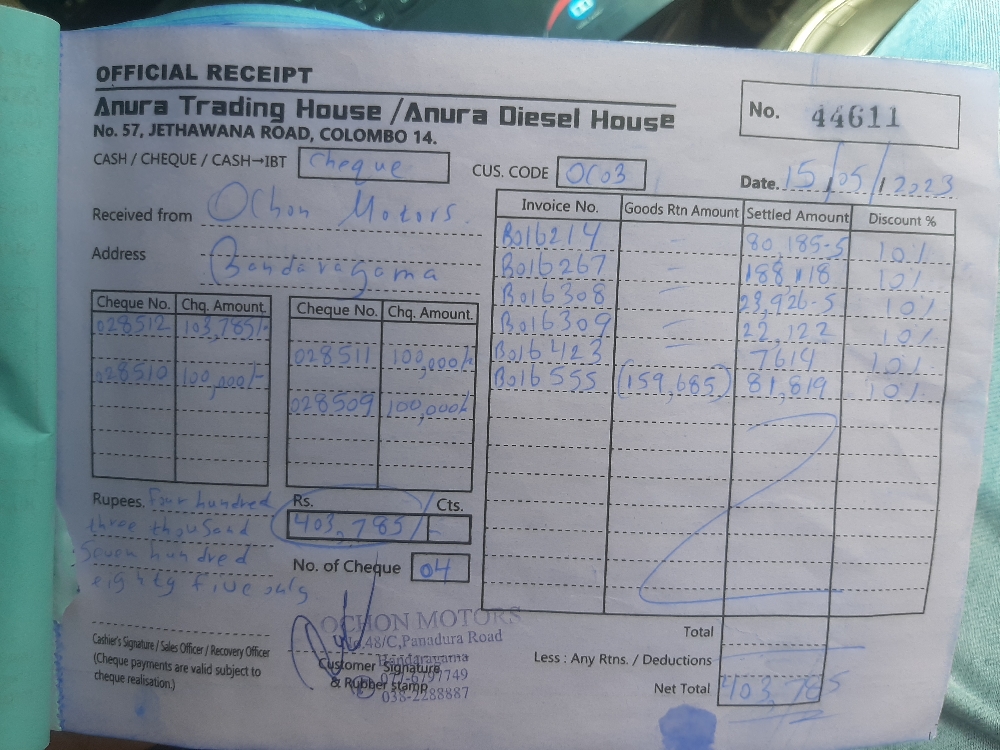 OFFICIAL RECEIPT
Anura Trading House / Anura Diesel House
No. 57, JETHAWANA ROAD, COLOMBO 14.
No. 44611
CASH / CHEQUE / CASH→IBT Cheque
CUS. CODE OC03
Date. 15/05/2023
Received from Ochon Motors.
Address Bandaragama
Cheque No. Chq. Amount. Cheque No. Chq. Amount.
028512 103,785/-
028511 100,000/-
028510 100,000/-
028509 100,000/-
Invoice No. Goods Rtn Amount Settled Amount Discount %
Bo16214 – 80,185-5 10%
Bo16267 – 188118 10%
Bo16308 – 23,926-5 10%
Bo16309 – 22,122 10%
Bo16423 7614 10%
Bo16555 (159,685) 81,819 10%
Rupees. Four hundred
three thousand
Seven hundred
eighty five only
Rs. Cts.
403,785/-
No. of Cheque 04
Total
Less : Any Rtns. / Deductions
Net Total 403,785
Cashier's Signature / Sales Officer / Recovery Officer
(Cheque payments are valid subject to
cheque realisation.)
OCHON MOTORS
No.48/C,Panadura Road
Bandaragama
Customer Signature
& Rubber stamp
077-6797749
038-2288887